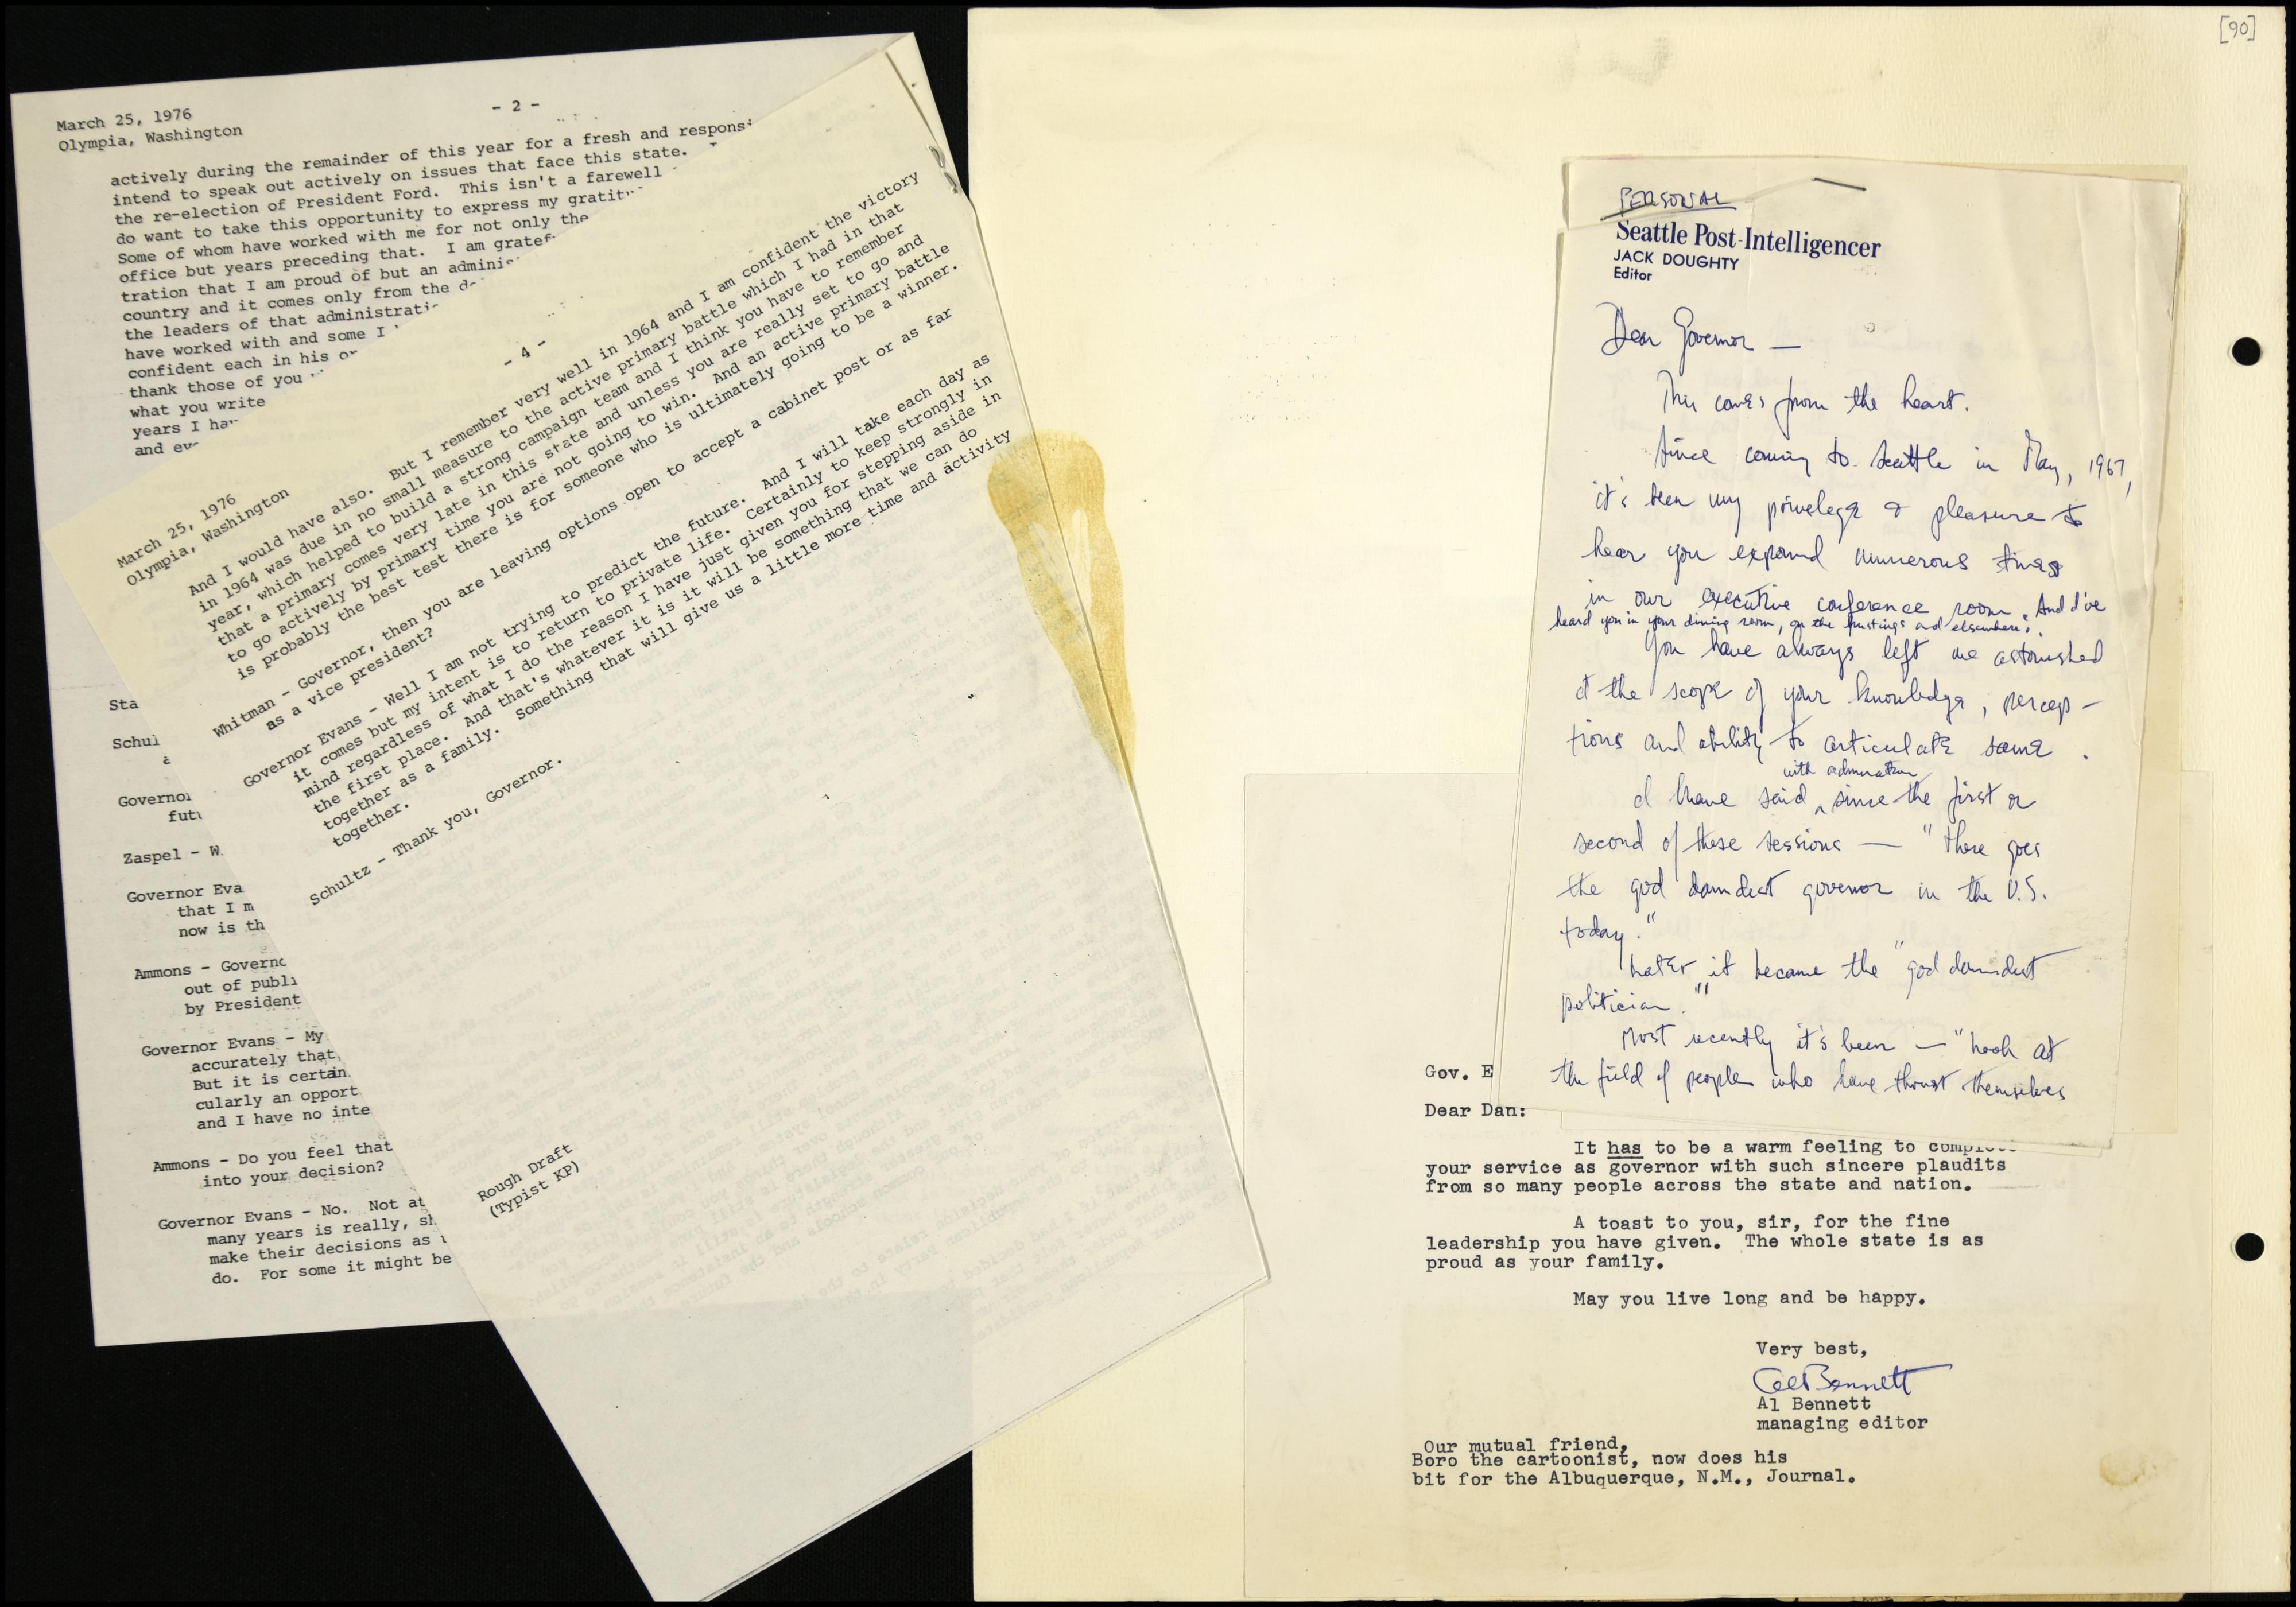 March 25, 1976
Olympia, Washington
- 2 -
actively during the remainder of this year for a fresh and respons
intend to speak out actively on issues that face this state.
the re-election of President Ford. This isn't a farewell
do want to take this opportunity to express my gratit
Some of whom have worked with me for not only the
office but years preceding that. I am gratef
tration that I am proud of but an adminis
country and it comes only from the de
the leaders of that administrati
have worked with and some I
confident each in his o
thank those of you
what you write
years I hav
and ev
Sta
Schul
Governor
futu
Zaspel - W
Governor Eva
that I m
now is th
Ammons - Governo
out of publi
by President
Governor Evans - My
accurately that
But it is certain
cularly an opport
and I have no inte
Ammons - Do you feel that
into your decision?
Governor Evans - No. Not at
many years is really, sh
make their decisions as
do. For some it might be
March 25, 1976
Olympia, Washington
- 4 -
And I would have also. But I remember very well in 1964 and I am confident the victory
in 1964 was due in no small measure to the active primary battle which I had in that
year, which helped to build a strong campaign team and I think you have to remember
that a primary comes very late in this state and unless you are really set to go and
to go actively by primary time you are not going to win. And an active primary battle
is probably the best test there is for someone who is ultimately going to be a winner.
Whitman - Governor, then you are leaving options open to accept a cabinet post or as far
as a vice president?
Governor Evans - Well I am not trying to predict the future. And I will take each day as
it comes but my intent is to return to private life. Certainly to keep strongly in
mind regardless of what I do the reason I have just given you for stepping aside in
the first place. And that's whatever it is it will be something that we can do
together as a family. Something that will give us a little more time and activity
together.
Schultz - Thank you, Governor.
Rough Draft
(Typist KP)
[90]
PERSONAL
Seattle Post-Intelligencer
JACK DOUGHTY
Editor
Dear Governor —
This comes from the heart.
Since coming to Seattle in May, 1967,
it's been my privelege & pleasure to
hear you expound numerous times
in our executive conference room. And I've
heard you in your dining room, on the hustings and elsewhere.
You have always left me astonished
at the scope of your knowledge, percep-
tions and ability to articulate same.
with admiration
I have said, since the first or
second of these sessions — "there goes
the god damdest governor in the U.S.
today."
Later it became the "god damdest
politician."
Most recently it's been — "Look at
the field of people who have thrust themselves
Gov. E
Dear Dan:
It has to be a warm feeling to complete
your service as governor with such sincere plaudits
from so many people across the state and nation.
A toast to you, sir, for the fine
leadership you have given. The whole state is as
proud as your family.
May you live long and be happy.
Very best,
Al Bennett
Al Bennett
managing editor
Our mutual friend,
Boro the cartoonist, now does his
bit for the Albuquerque, N.M., Journal.